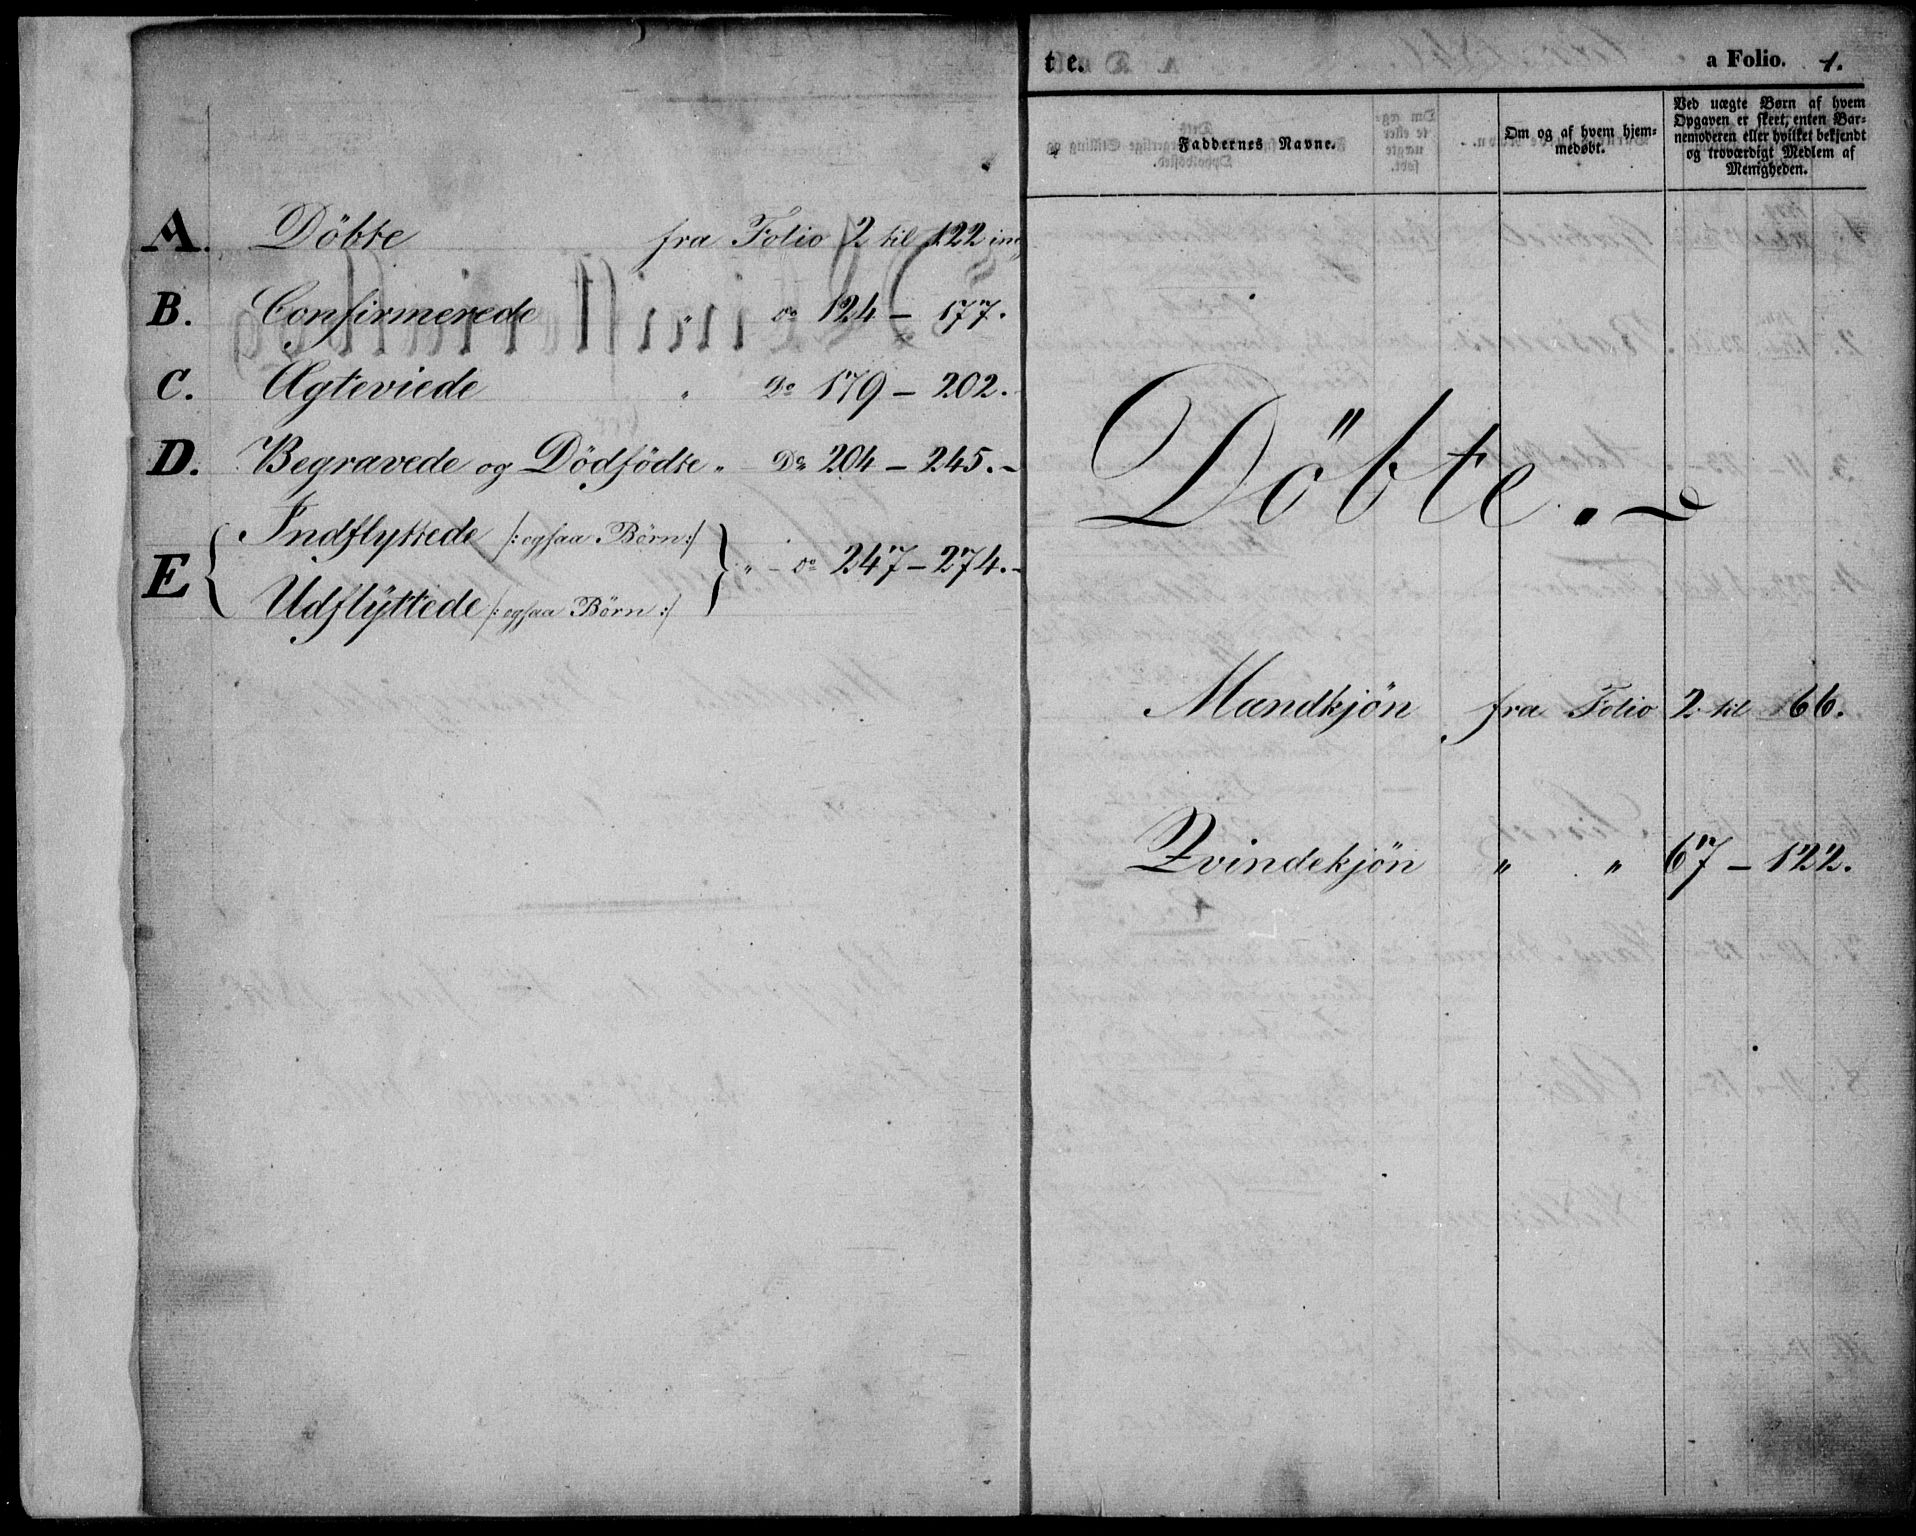 A. Döbte fra Folio 2 til 122 incl
B. Confirmerede " do 124 – 177.
C. Ægteviede " Do 179 – 202.
D. Begravede og Dödfödte " Do 204 – 245. –
E { Indflyttede /: ogsaa Börn :/
Udflÿttede /: ogsaa Börn :/ } " – do 247 – 274. –
te. a Folio. 1.
Faddernes Navne.
Om og af hvem hjem-
medøbt.
Ved uægte Børn af hvem
Opgaven er skeet, enten Bar-
nemoderen eller hvilket bekjendt
og troværdigt Medlem af
Menigheden.
Döbte. –
Mændkjön fra Folio 2 til 66.
Qvindekjön " " 67 – 122.